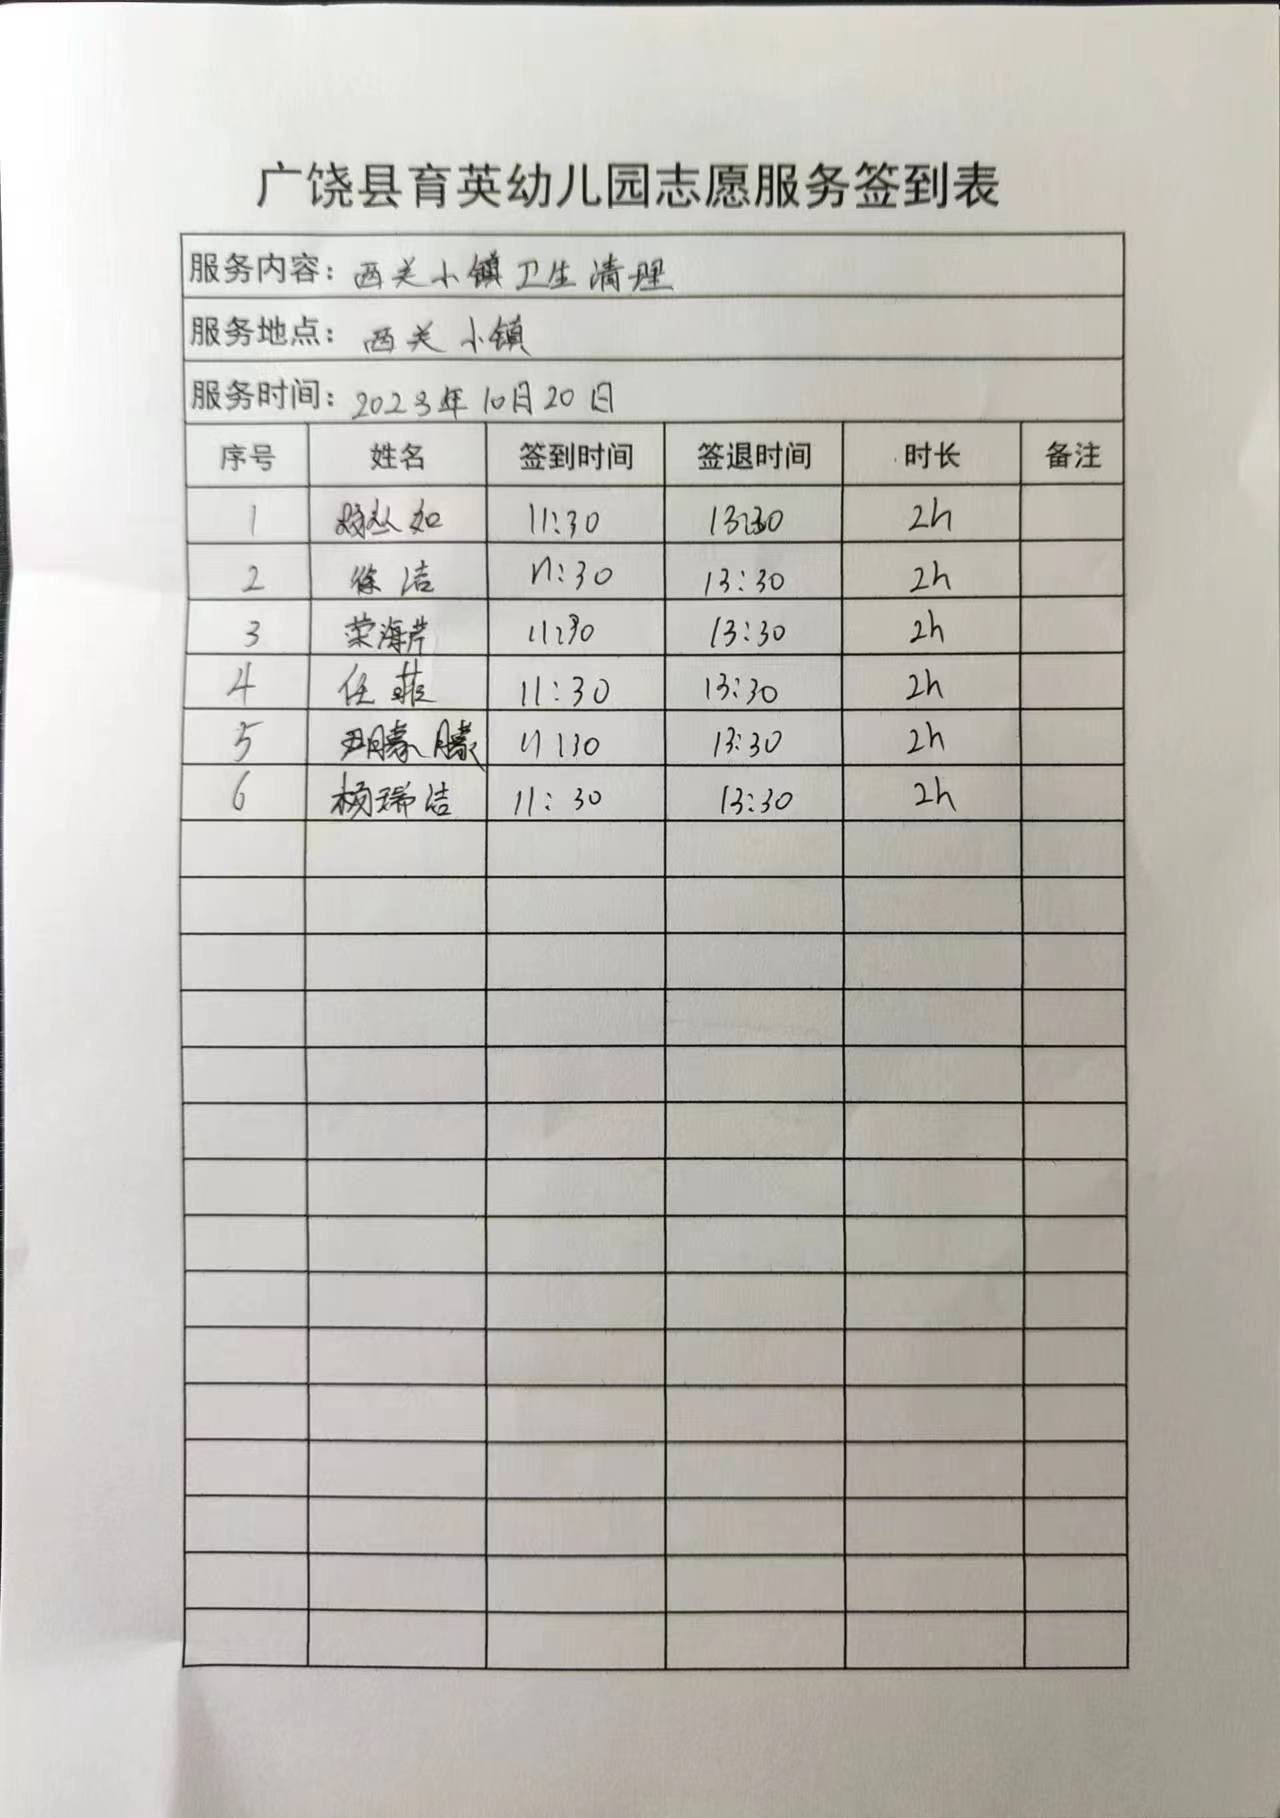 广饶县育英幼儿园志愿服务签到表
服务内容：西关小镇卫生清理
服务地点：西关小镇
服务时间：2023年10月20日
序号 姓名 签到时间 签退时间 时长 备注
1 11:30 13:30 2h
2 徐洁 11:30 13:30 2h
3 荣海芹 11:30 13:30 2h
4 任菲 11:30 13:30 2h
5 11:30 13:30 2h
6 杨瑞洁 11:30 13:30 2h